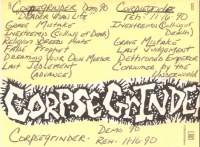 Corpsegrinder Demo 90
Deader Than Life
Grave Mistake
Inextremis (Culling of Death)
Religion Breeds Hate
False Prophet
Dreaming Your Own Murder
Last Judgement
(Advance)
Corpsegrinder
Reh. 11-16-90
Inextremis (Culling of
Death)
Grave Mistake
Last Judgement
Dethroned Emperor
Consumed by the
Underworld
CORPSEGRINDER
Demo 90
Corpsegrinder:
Reh. 11-16 90